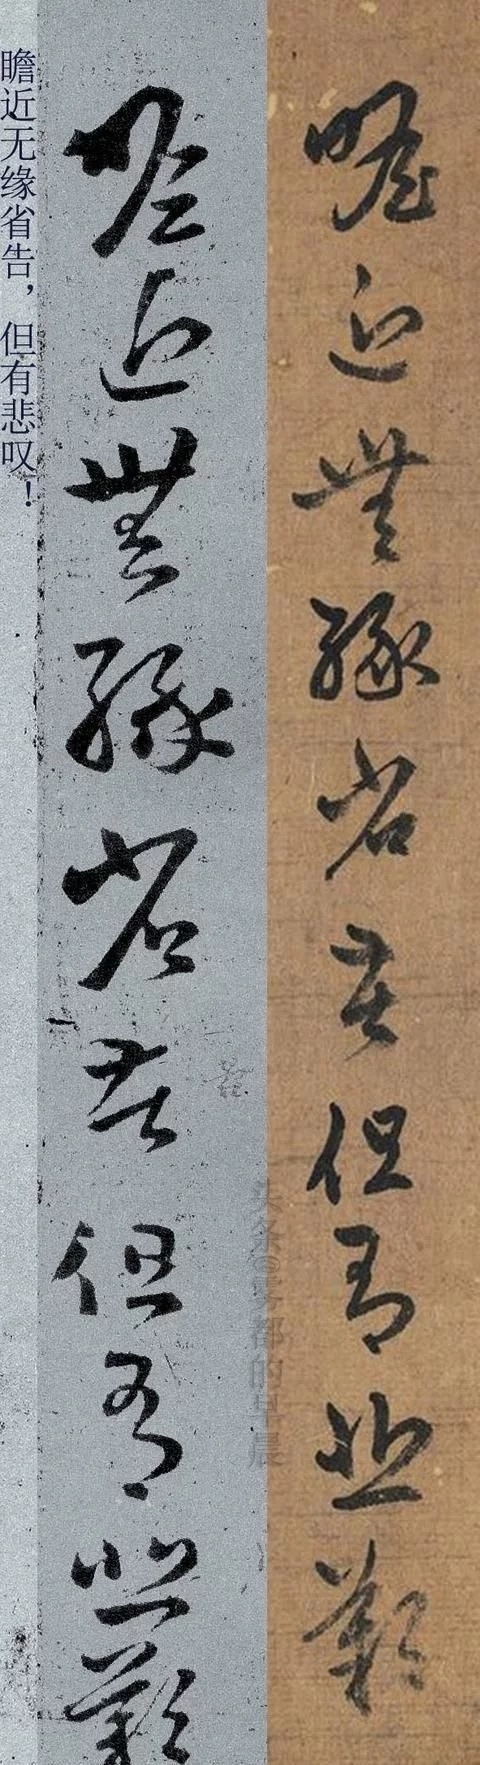 瞻近无缘省告，但有悲叹！
瞻近無緣省告但有悲歎
瞻近無緣省告但有悲歎
头条@雾都的早晨